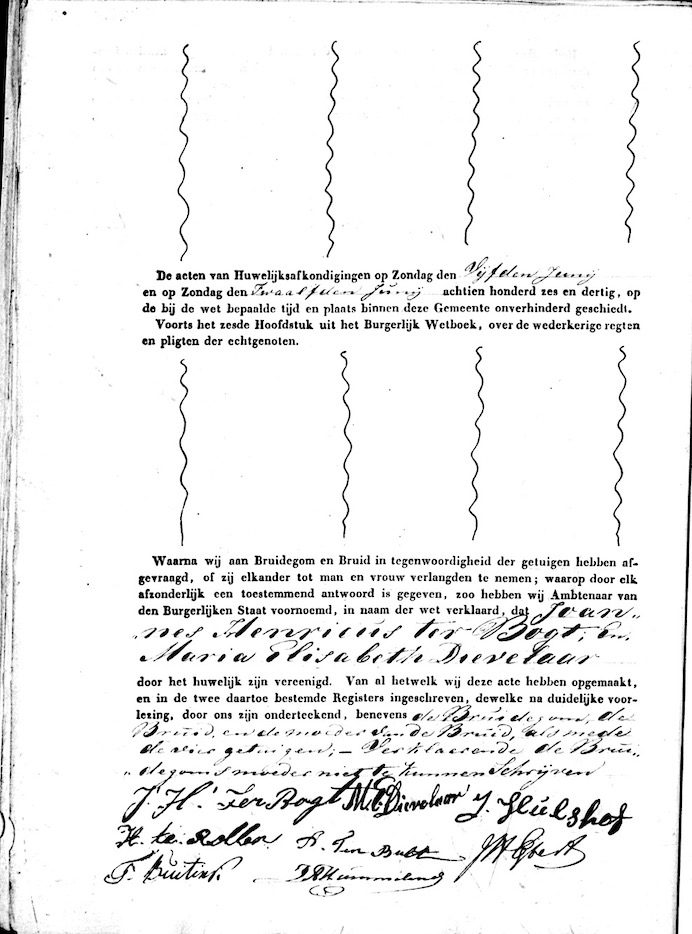 De acten van Huwelijksafkondigingen op Zondag den Vijfden Junij
en op Zondag den Twaalfden Junij achtien honderd zes en dertig, op
de bij de wet bepaalde tijd en plaats binnen deze Gemeente onverhinderd geschiedt.
Voorts het zesde Hoofdstuk uit het Burgerlijk Wetboek, over de wederkerige regten
en pligten der echtgenoten.
Waarna wij aan Bruidegom en Bruid in tegenwoordigheid der getuigen hebben af-
gevraagd, of zij elkander tot man en vrouw verlangden te nemen; waarop door elk
afzonderlijk een toestemmend antwoord is gegeven, zoo hebben wij Ambtenaar van
den Burgerlijken Staat voornoemd, in naam der wet verklaard, dat Joan„
„nes Henricus ter Bogt, en,
Maria Elisabeth Dievelaar
door het huwelijk zijn vereenigd. Van al hetwelk wij deze acte hebben opgemaakt,
en in de twee daartoe bestemde Registers ingeschreven, dewelke na duidelijke voor-
lezing, door ons zijn onderteekend, benevens de Bruidegom, de
Bruid, en de moeder van de Bruid, als mede
de vier getuigen; – Verklaarende de Brui„
„degoms moeder niet te kunnen Schrijven
J. H. Ter Bogt M. E. Dievelaar J. Hulshof
H. te Rollen Ten Bult